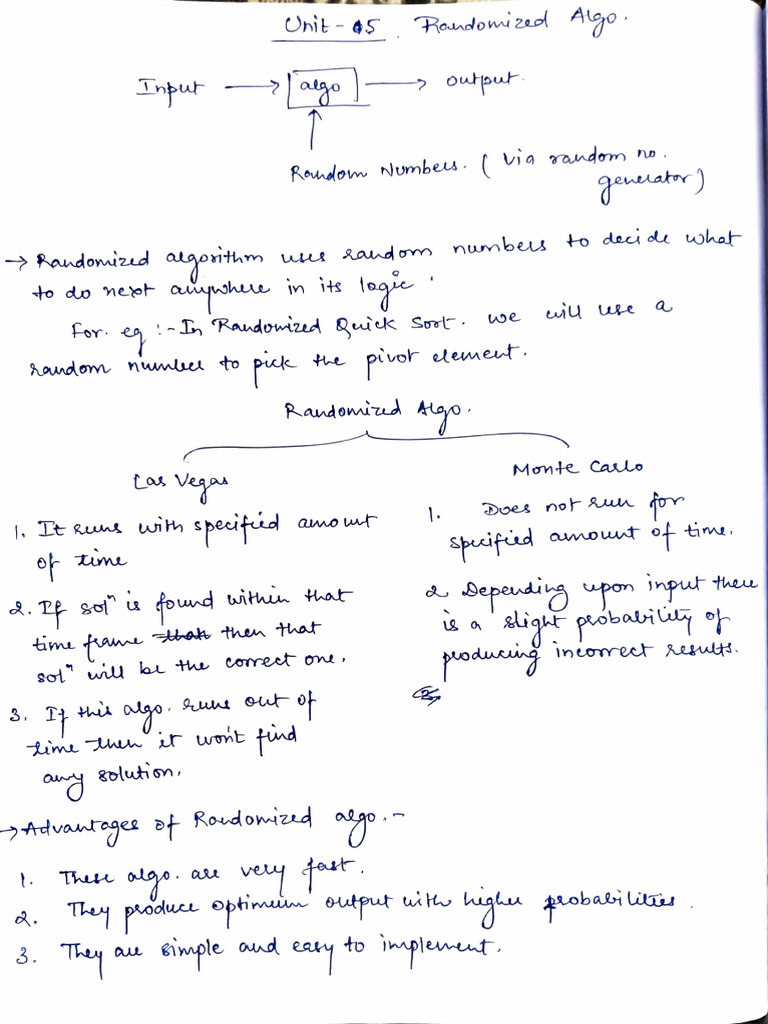 Unit - 5. Randomized Algo.
Input → algo → output.
Random Numbers. ( via random no.
generator)
→ Randomized algorithm uses random numbers to decide what
to do next anywhere in its logic.
for. eg :- In Randomized Quick Sort. we will use a
random number to pick the pivot element.
Randomized Algo.
Las Vegas
1. It runs with specified amount
of time
2. If solⁿ is found within that
time frame that then that
solⁿ will be the correct one.
3. If this algo. runs out of
time then it won't find
any solution.
Monte Carlo
1. Does not run for
specified amount of time.
2 Depending upon input there
is a slight probability of
producing incorrect results.
→ Advantages of Randomized algo. -
1. These algo. are very fast.
2. They produce optimum output with higher probabilities.
3. They are simple and easy to implement.